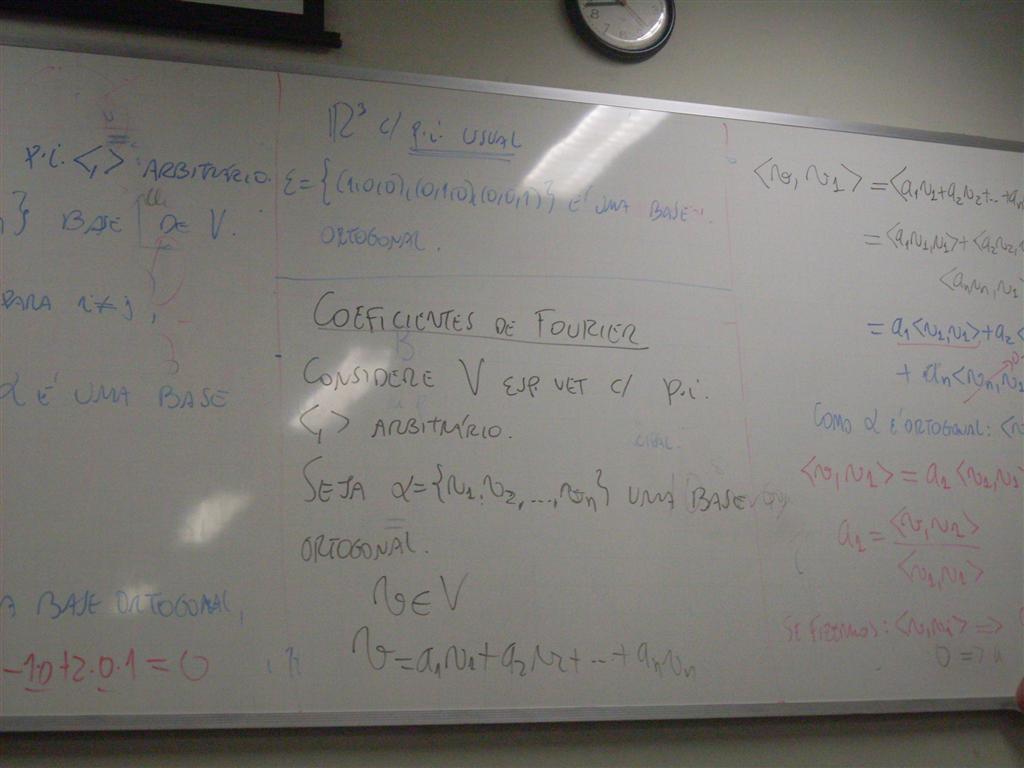 p.i. <,> ARBITRÁRIO.
} BASE DE V.
PARA i≠j,
α É UMA BASE
A BASE ORTOGONAL,
-1.0+2.0.1=0
ℝ³ c/ p.i. USUAL
ε={(1,0,0),(0,1,0),(0,0,1)} É UMA BASE
ORTOGONAL.
COEFICIENTES DE FOURIER
CONSIDERE V ESP. VET c/ p.i.
<,> ARBITRÁRIO.
SEJA α={v1,v2,...,vn} UMA BASE
ORTOGONAL.
v∈V
v=a1v1+a2v2+...+anvn
<v,v1>=<a1v1+a2v2+...+an
=<a1v1,v1>+<a2v2,
<anvn,v1
=a1<v1,v1>+a2<
+an<vn,v1
COMO α É ORTOGONAL: <v
<v,v1>=a1<v1,v1>
a1=<v,v1>
<v1,v1>
SE FIZERMOS: <v,vi> =>